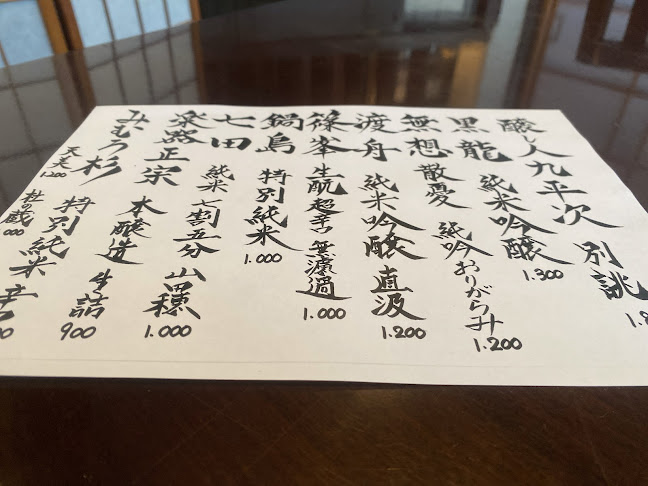 醸し人九平次 別誂
黒龍 純米吟醸 1.300
無想 散憂 純吟おりがらみ 1.200
渡舟 純米吟醸 直汲 1.200
篠峯 生酛 超辛 無濾過 1.000
鍋島 特別純米 1.000
七田 純米 七割五分 山田穂 1.000
正宗 本醸造 生詰 900
みむろ杉 特別純米 辛
天美 1.200
杜の蔵